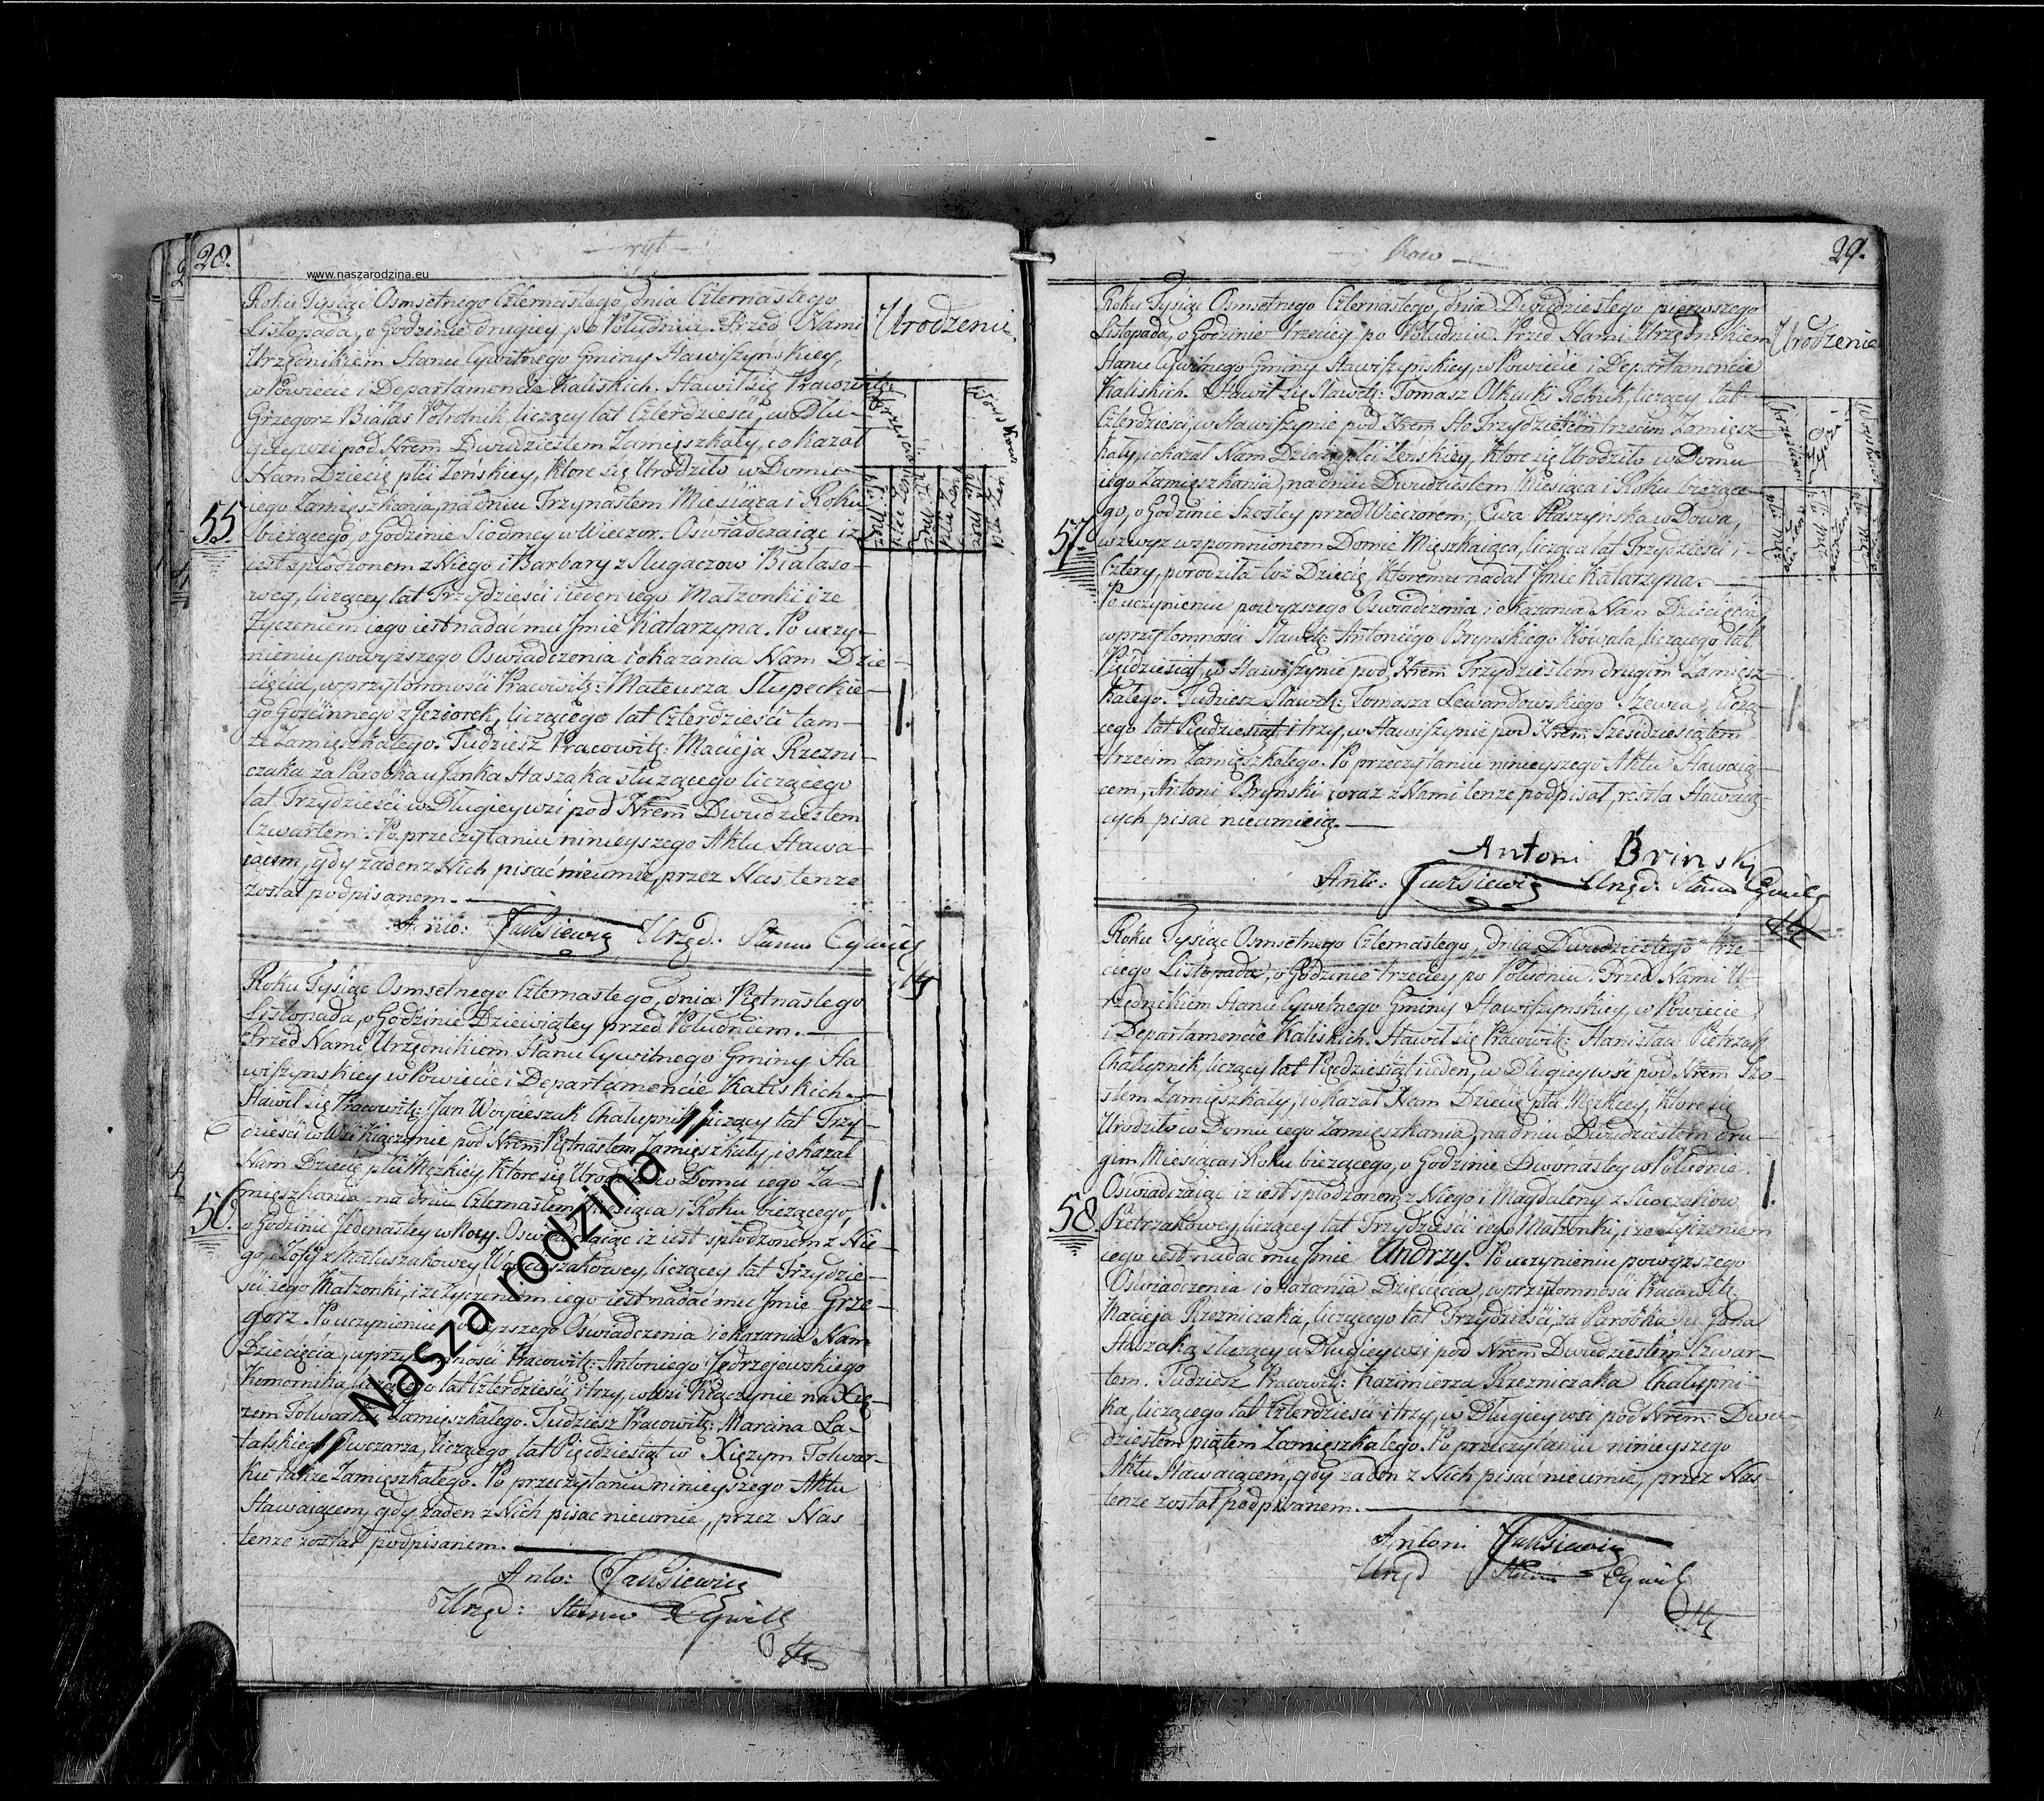 28.
ryt
www.naszarodzina.eu
Roku Tysiąc Osmsetnego Czternastego, dnia Czternastego
Listopada, o Godzinie drugiey po Południu. Przed Nami
Urzędnikiem Stanu Cywilnego Gminy Stawiszyńskiey,
w Powiecie i Departamencie Kaliskich. Stawił się Pracowitz:
Grzegorz Białas Półrolnik, liczący lat Czterdzieści, w Dłu-
giey wsi pod Nrem Dwudziestem Zamięszkały, i okazał
Nam Dziecię płci Zenskiey, które się Urodziło w Domu
iego Zamięszkania, na dniu Trzynastem Miesiąca i Roku
bieżącego, o Godzinie Siodmey w Wieczor. Oświadczaiąc iż
iest spłodzonem z Niego i Barbary z Sługaczow Białaso-
wey, liczącey lat Trzydzieści i ieden iego Małzonki i że
Życzeniem iego iest nadać mu Jmie Katarzyna. Po uczy-
nieniu powyższego Oswiadczenia i okazania Nam Dzie-
cięcia, w przytomności Pracowitz: Mateusza Słupeckie-
go Gościnnego z Jeziorek, liczącego lat Czterdzieści tam-
że Zamięszkałego. Tudziesz Pracowitz: Macieja Rzezni-
czaka za Parobka u Janka Staszaka służącego liczącego
lat Trzydzieści w Długiey wsi pod Nrem Dwudziestem
Czwartem. Po przeczytaniu ninieyszego Aktu Stawa-
iącem, gdy żaden z Nich pisać nieumie, przez Nas tenże
został podpisanem.
Anto: Jaksiewicz Urzęd: Stanu Cywil
55
Urodzenie
1.
Roku Tysiąc Osmsetnego Czternastego, dnia Piętnastego
Listopada, o Godzinie Dziewiątey przed Południem.
Przed Nami Urzędnikiem Stanu Cywilnego Gminy Sta
wiszynskiey w Powiecie i Departamencie Kaliskich.
Stawił się Pracowitz: Jan Woycieszak Chałupnik liczący lat Trzy-
dzieści w Wsi Kiączynie pod Nrem Piętnastem Zamięszkały, i okazał
Nam Dziecię płci Męzkiey które się Urodziło w Domu iego Za-
mięszkania na dniu Czternastem Miesiąca i Roku bieżącego,
o Godzinie Jedenastey w Nocy. Oswiadczaiąc iż iest spłodzonem z Nie-
go i Zofij z Matuszakowey Woycieszakowey, liczącey lat Trzydzie-
ści iego Małzonki, i że Życzeniem iego iest nadać mu Jmie Grze-
gorz. Po uczynieniu powyższego Oświadczenia i okazania Nam
Dziecięcia, w przytomności Pracowitz: Antoniego Jędrzejewskiego
Komornika, liczącego lat Czterdzieści i trzy, w wsi Kiączynie na Xię-
zem Folwarku Zamięszkałego. Tudziesz Pracowitz: Marcina La-
talskiego Owczarza, liczącego lat Pięćdziesiąt w Xiężym Folwar-
ku także Zamięszkałego. Po przeczytaniu ninieyszego Aktu
Stawaiącem, gdy żaden z Nich pisać nieumie, przez Nas
tenże został podpisanem.
Anto: Jaksiewicz
Urzęd: Stanu Cywill
56.
1.
Nasza rodzina
kow
29.
Roku Tysiąc Osmsetnego Czternastego, dnia Dwudziestego pierwszego
Listopada, o Godzinie trzeciey po Południu. Przed Nami Urzędnikiem
Stanu Cywilnego Gminy Stawiszyńskiey, w Powiecie i Departamencie
Kaliskich. Stawił się Sławetz: Tomasz Olkucki Rolnik, liczący lat
Czterdzieści, w Stawiszynie pod Nrem Sto Trzydziestem trzecim Zamięsz-
kały, i okazał Nam Dziecię płci Żeńskiey, które się Urodziło w Domu
iego Zamięszkania, na dniu Dwudziestem Miesiąca i Roku bieżące-
go, o Godzinie Szóstey przed Wieczorem, Ewa Ptaszynska wdowa,
w zwyz wspomnionem Domie Mięszkaiąca, licząca lat Trzydzieści i
Cztery, porodziła toż Dziecię, któremu nadał Jmie Katarzyna.
Po uczynieniu powyższego Oświadczenia i okazania Nam Dziecięcia
w przytomności Sławetz: Antoniego Brynskiego Kowala, liczącego lat
Pięćdziesiąt, w Stawiszynie pod Nrem Trzydziestem drugim Zamięsz-
kałego. Tudziesz Sławetz: Tomasza Lewandowskiego Szewca, liczą-
cego lat Pięćdziesiąt i trzy, w Stawiszynie pod Nrem Sześćdziesiątem
trzecim Zamięszkałego. Po przeczytaniu ninieyszego Aktu Stawaią-
cem, Antoni Brynski wraz z Nami tenże podpisał, reszta Stawaią-
cych pisać nieumieią.
Antoni Brinsky
Anto: Jaksiewicz Urzęd: Stanu Cywil
57.
Urodzenie
1.
Roku Tysiąc Osmsetnego Czternastego, dnia Dwudziestego trze-
ciego Listopada, o Godzinie trzeciey po Południu. Przed Nami U-
rzędnikiem Stanu Cywilnego Gminy Stawiszynskiey, w Powiecie
i Departamencie Kaliskich. Stawił się Pracowitz: Stanisław Pietrzak
Chałupnik, liczący lat Pięćdziesiąt i ieden, w Długiey wsi pod Nrem Szo-
stem Zamięszkały, i okazał Nam Dziecię płci Męzkiey, które się
Urodziło w Domu iego Zamięszkania, na dniu Dwudziestem dru-
gim Miesiąca i Roku bieżącego, o Godzinie Dwonastey w Południe.
Oświadczaiąc iż iest spłodzonem z Niego i Magdaleny z
Pietrzakowey liczącey lat Trzydzieści iego Małżonki, i że Życzeniem
iego iest nadać mu Jmie Andrzy. Po uczynieniu powyższego
Oświadczenia i okazania Dziecięcia, w przytomności Pracowitz:
Macieja Rzezniczaka, liczącego lat Trzydzieści, za Parobka u Jana
Staszaka służący w Długiey wsi pod Nrem Dwudziestem Czwar-
tem. Tudziesz Pracowitz: Kazimierza Rzezniczaka Chałupni-
ka, liczącego lat Czterdzieści i trzy, w Długiey wsi pod Nrem Dwu-
dziestem piątem Zamięszkałego. Po przeczytaniu ninieyszego
Aktu Stawaiącem, gdy żaden z Nich pisać nieumie, przez Nas
tenże został podpisanem.
Antoni Jaksiewicz
Urzęd Stanu Cywil
58.
1.